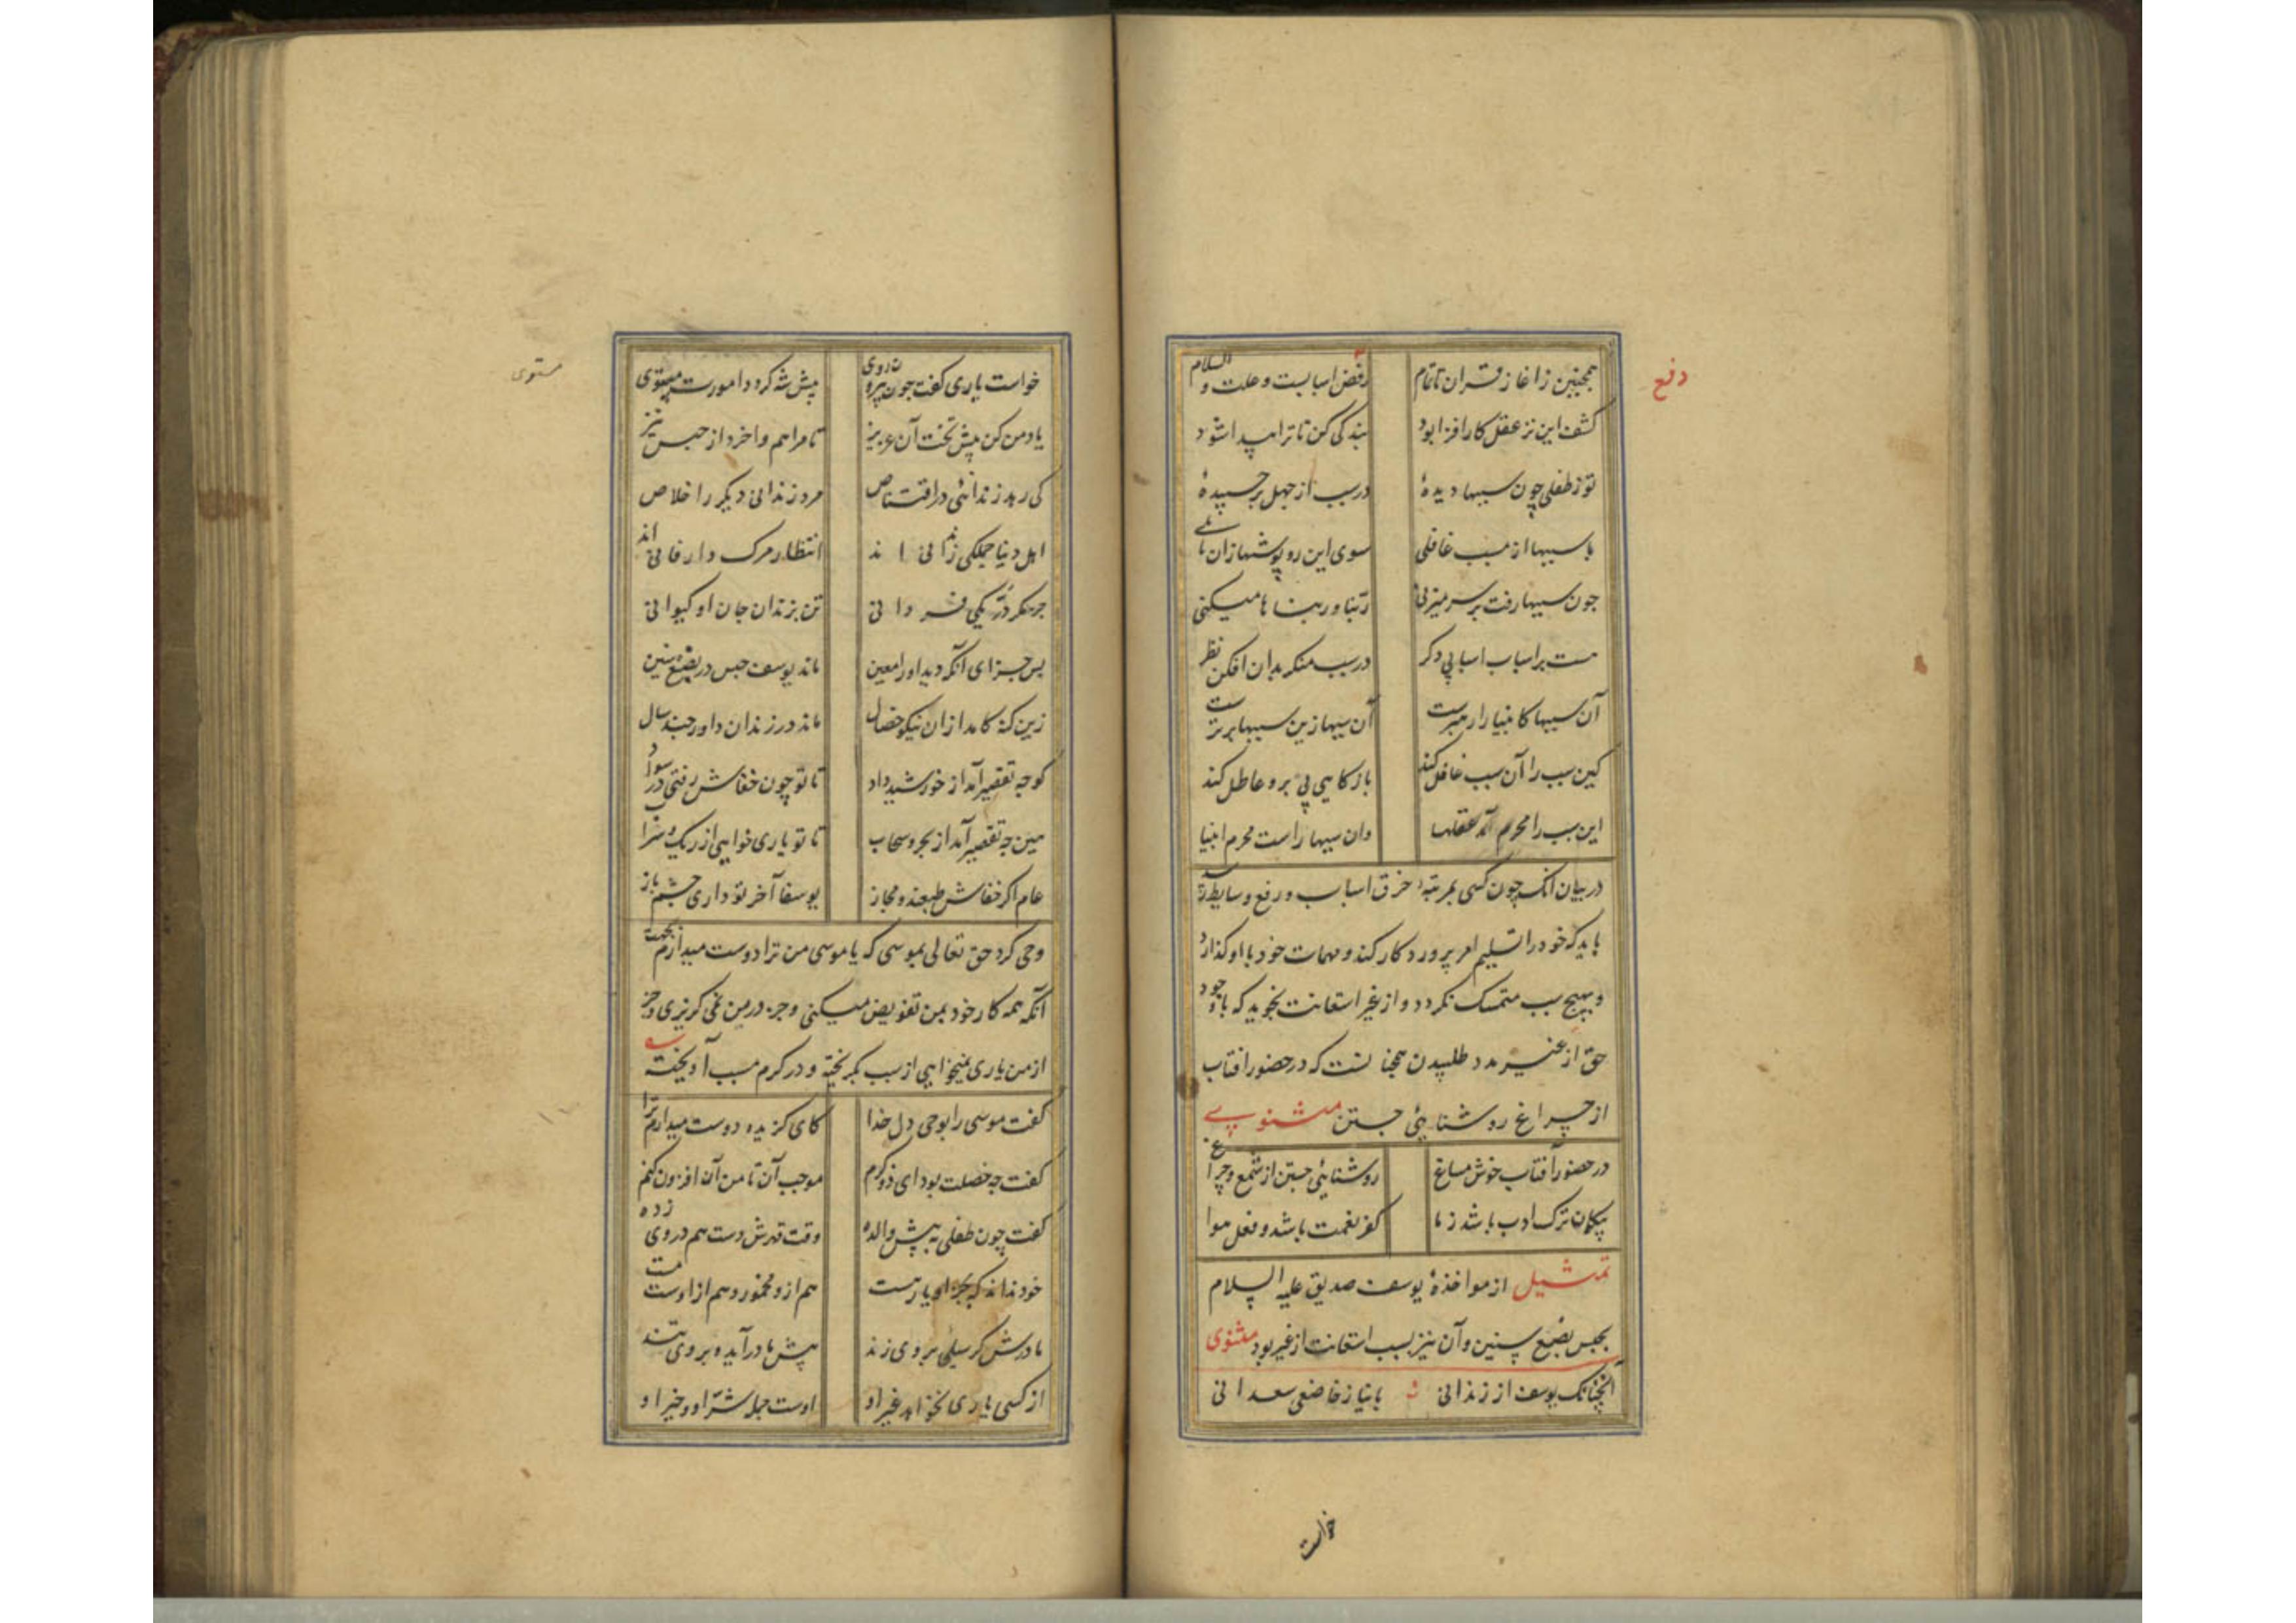 دفع
همچنین زاغاز قران تا تمام رفض اسبابست و علت و السلام
کشف این نز عقل کارافزا بود بندگی کن تا ترا پیدا شود
تو ز طفلی چون سببها دیدهٔ در سبب از جهل برچسپیدهٔ
با سببها از مسبب غافلی سوی این روپوشها زان مایلی
چون سببها رفت بر سر میزنی ربنا و ربناها میکنی
هست بر اسباب اسبابی دگر در سبب منگر بدان افکن نظر
آن سببها کانبیا را رهبرست آن سببها زین سببها برترست
کین سبب را آن سبب عامل کند باز گاهی بی بر و عاطل کند
این سبب را محرم آمد عقلها وان سببها راست محرم انبیا
در بیان آنک چون کسی بمرتبهٔ خرق اسباب و رفع وسایط رسد
باید که خود را تسلیم امر پروردکار کند و مهمات خود با او کذارد
و بهیچ سبب متمسک نکردد و از غیر استعانت نجوید که با وجود
حق از غیر مدد طلبیدن همچنانست که در حضور آفتاب
از چراغ روشنایی جستن مثنوی
در حضور آفتاب خوش مساغ روشنایی جستن از شمع و چراغ
بیکمان ترک ادب باشد ز ما کفر نعمت باشد و فعل هوا
تمثیل از مواخذهٔ یوسف صدیق علیه السلام
بحبس بضع سنین و آن نیز بسبب استعانت از غیر بود مثنوی
آنچنانک یوسف از زندانی با نیاز خاضعی سعدانی
خواست
مستوی
خواست یاری گفت چون بیرون روی پیش شه کردد امورت مستوی
یاد من کن پیش تخت آن عزیز تا مرا هم واخرد از حبس نیز
کی رهد زندانئی در اقتناص مرد زندانی دیکر را خلاص
اهل دنیا جملکی زندانی اند انتظار مرک دار فانی اند
جز مکر نادر یکی فردانی تن بزندان جان او کیوانی
پس جزای آنکه دید او را معین ماند یوسف حبس در بضع سنین
زین کنه کامد ازان نیکو خصال ماند در زندان داور چند سال
که چه تقصیر آمد از خورشید داد تا تو چون خفاش رفتی در سواد
هین چه تقصیر آمد از بحر و سحاب تا تو یاری خواهی از ریک و سراب
عام اکر خفاش طبعند و مجاز یوسفا آخر تو داری چشم باز
وحی کرد حق تعالی بموسی که یا موسی من ترا دوست میدارم بجهت
آنکه همه کار خود بمن تفویض میکنی و جز در من نمی کریزی و جز
از من یاری نمیخواهی از سبب بکریخته و در کرم مسبب آویخته
گفت موسی را بوحی دل خدا کای کزیده دوست میدارم ترا
گفت چه خصلت بود ای ذو کرم موجب آن تا من آن افزون کنم
گفت چون طفلی به پیش والده وقت قهرش دست هم در وی زده
خود نداند که بجز او یار هست هم ازو مخمور و هم از اوست مست
مادرش کر سیلی بر وی زند پیش مادر آید و بر وی تند
از کسی یاری نخواهد غیر او اوست جمله شر او و خیر او